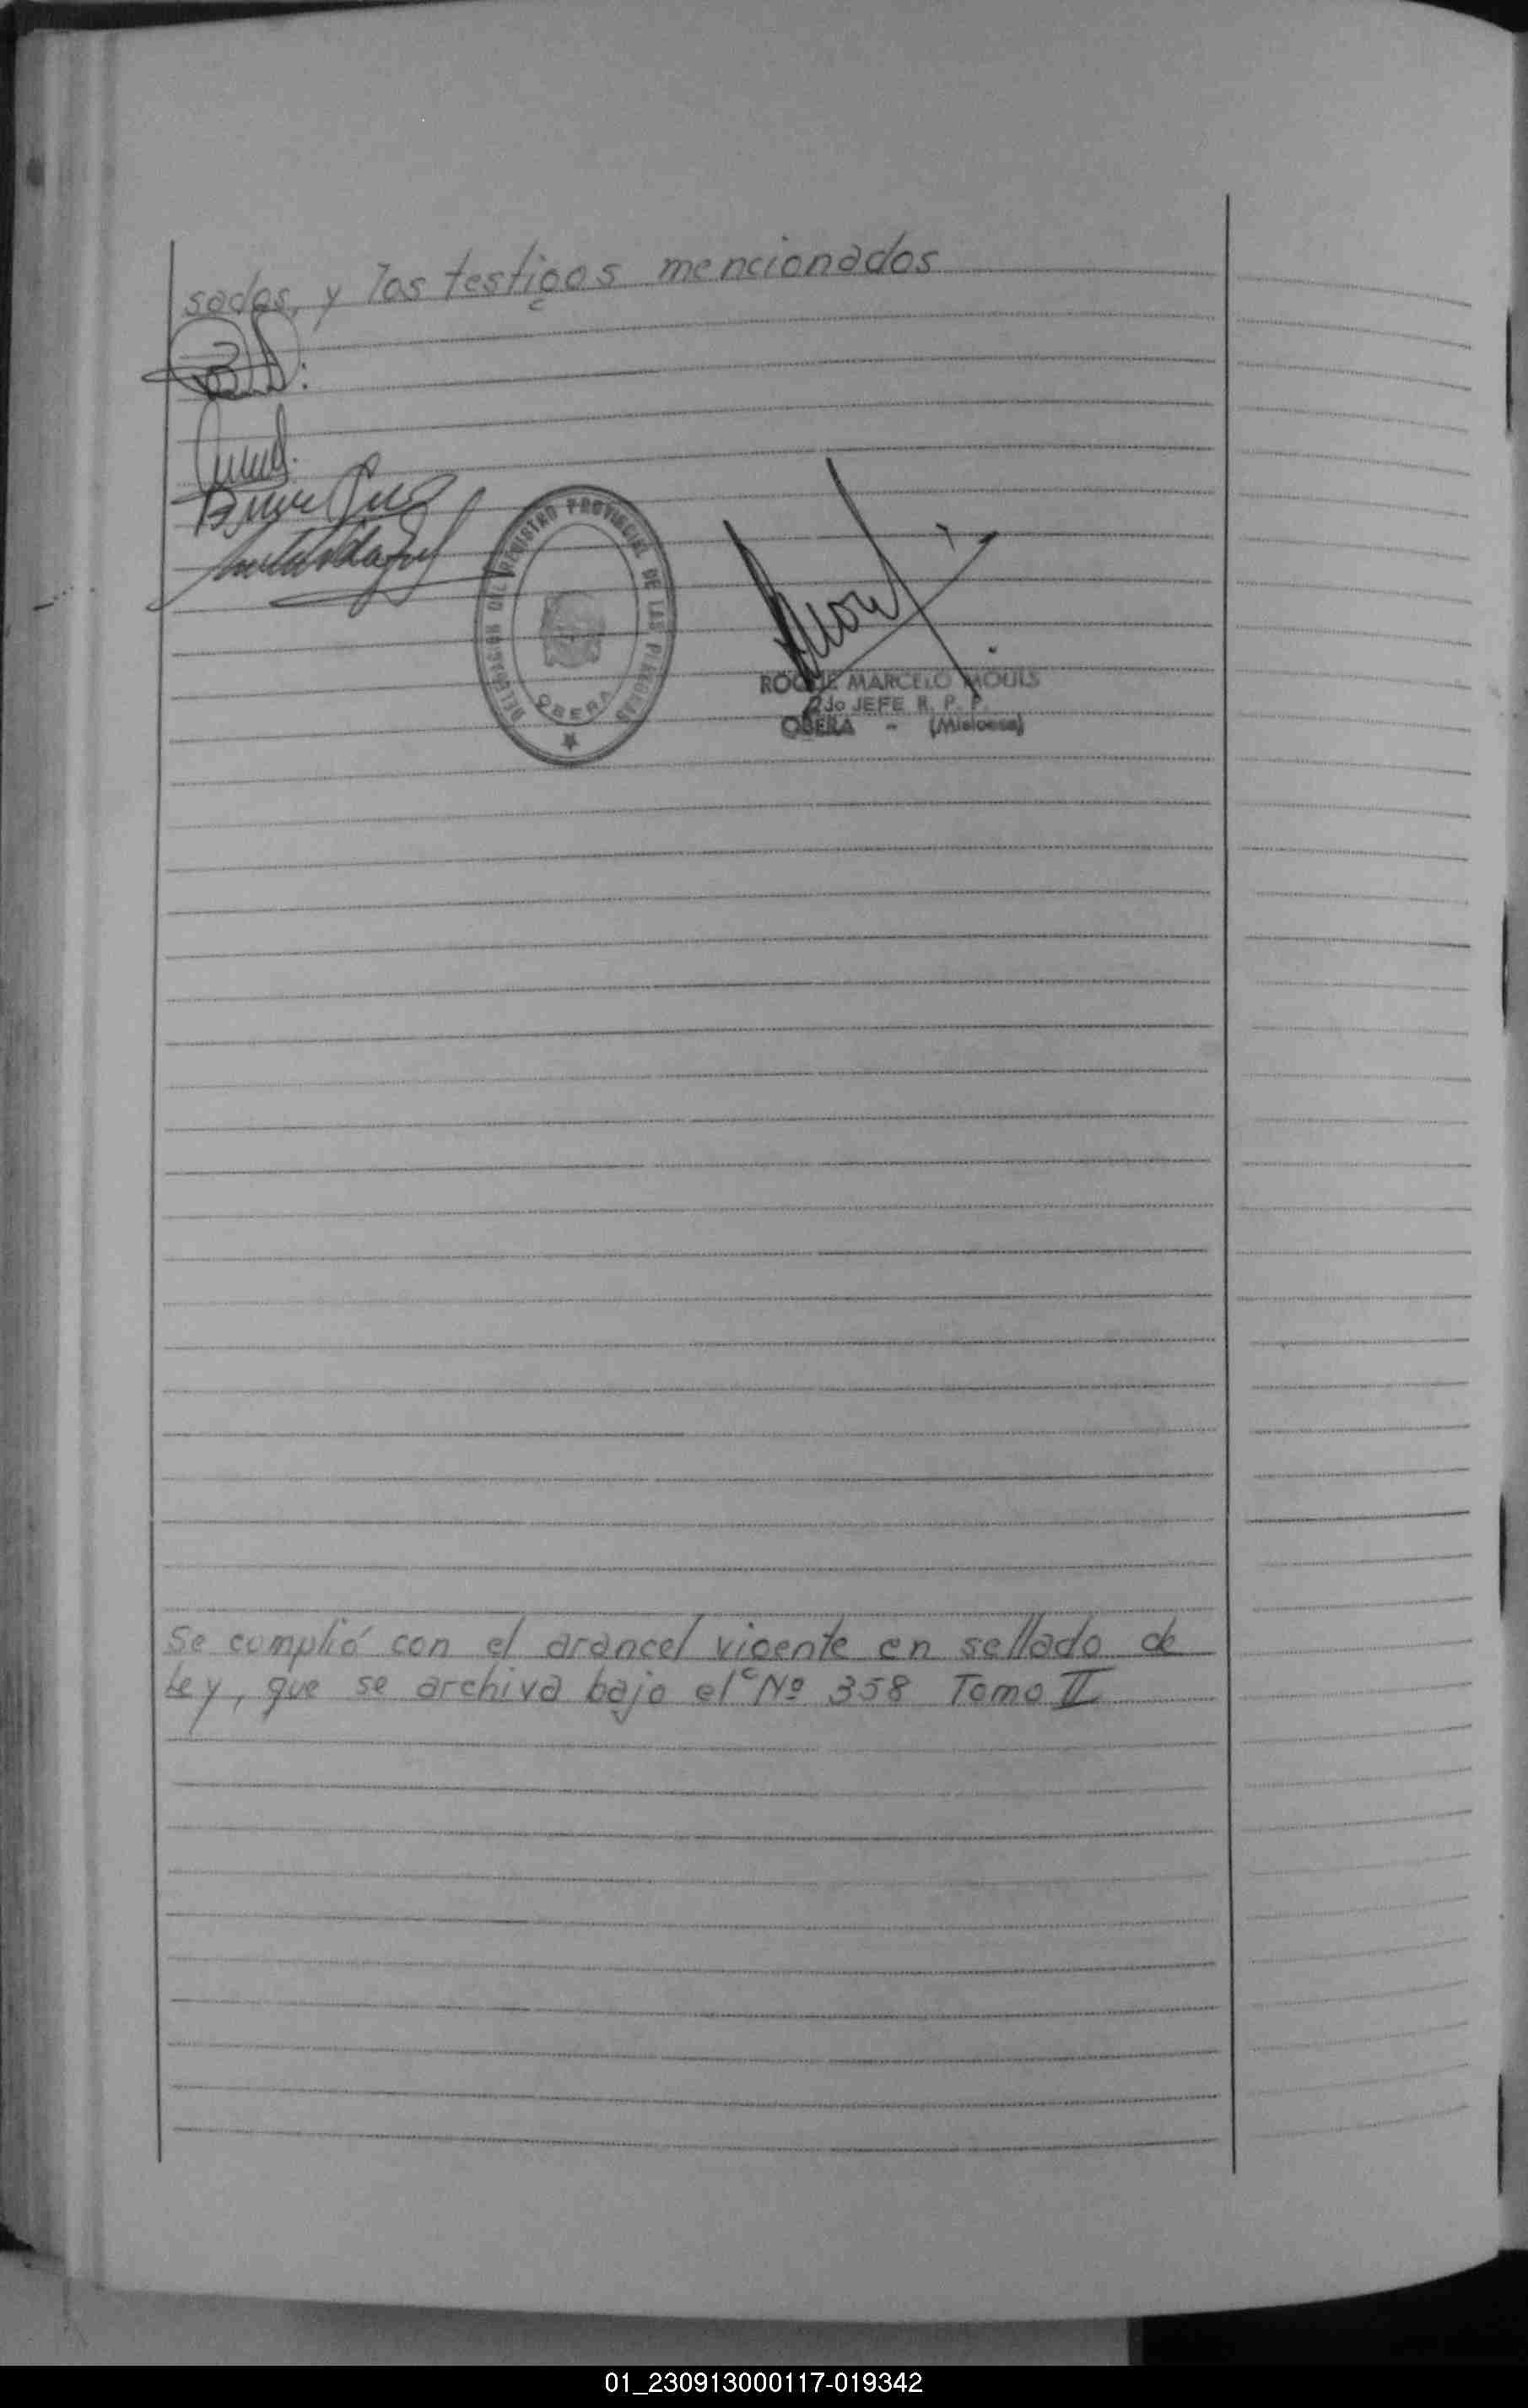 sados, y los testigos mencionados
DELEGACION DEL REGISTRO PROVINCIAL DE LAS PERSONAS
OBERA
ROQUE MARCELO MOULS
2do JEFE R. P. P.
OBERA - (Misiones)
Se cumplió con el arancel vigente en sellado de
Ley, que se archiva bajo el Nº 358 Tomo II
01_230913000117-019342